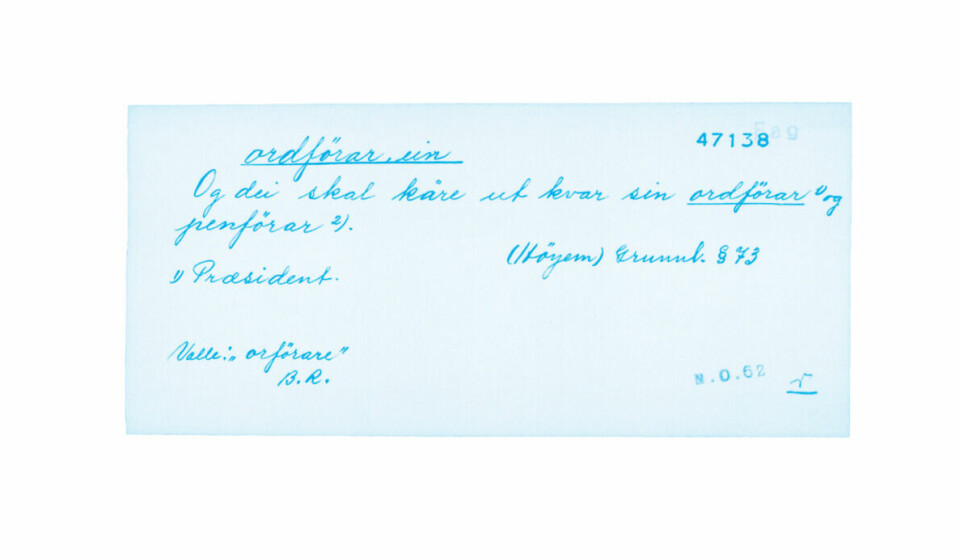 47138 Fag
ordförar, ein
Og dei skal kåre ut kvar sin ordförar ¹⁾ og
penförar ²⁾.
(Höyem) Grunnl. § 73
¹⁾ Præsident.
Valle: „orförare”
B.R.
N.O.62
r